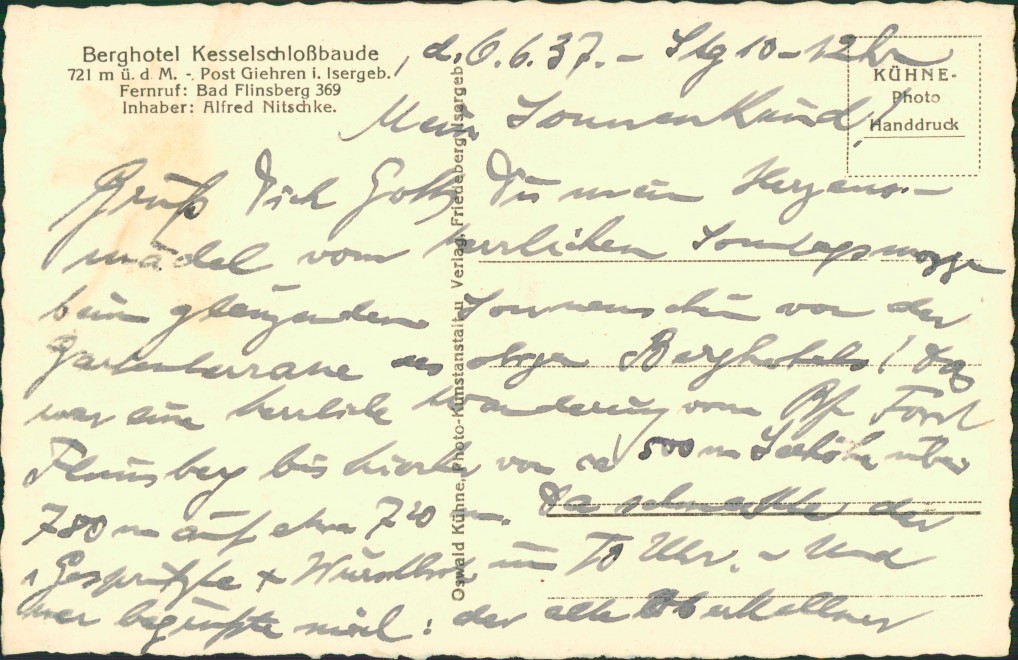 Berghotel Kesselschloßbaude
721 m ü. d M. -. Post Giehren i. Isergeb.
Fernruf: Bad Flinsberg 369
Inhaber: Alfred Nitschke.
KÜHNE-
Photo
Handdruck
Oswald Kühne, Photo-Kunstanstalt u Verlag, Friedeberg Isergeb.
d. 6.6.37. - Stg 10-12h
Mein Sonnenkind!
Grüß Dich Gott, Du mein Herzens-
mädel vom herrlichen Sonntagsmorgen
beim glänzenden Sonnenschein von der
Gartenterrasse des obigen Berghotels! Das
war eine herrliche Wanderung vom Bhf Forst
Flinsberg bis hierher von ca 500 m Seehöhe über
780 m auf etwa 720 m. Da schmeckte der
Gespritzte + Wurstbrot um 10 Uhr. - Und
wer begrüßte mich: der alte Oberkellner